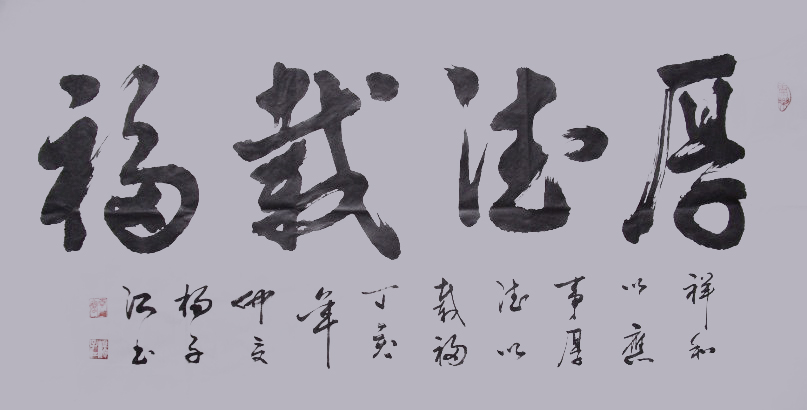 厚德載福
祥和
以應
事厚
德以
載福
丁亥
年
仲夏
楊子
江書